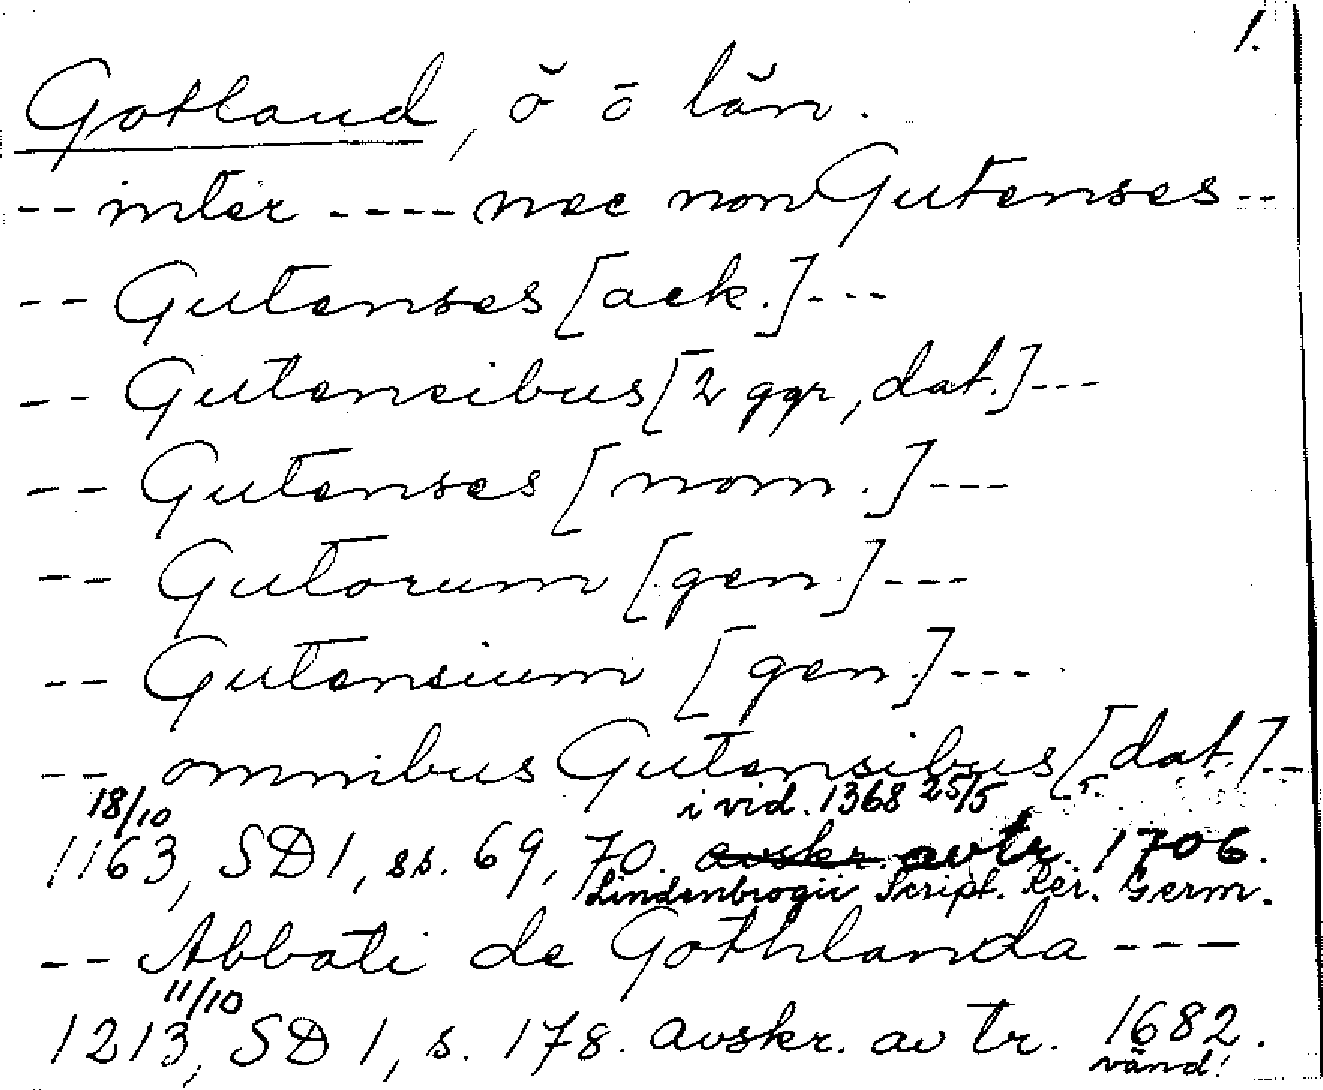 1.
Gotland, ö o län.
-- inter ---- nec non Gutenses --
-- Gutenses [ack.] ---
-- Gutensibus [2 ggr, dat.] ---
-- Gutenses [nom.] ---
-- Gutorum [gen.] ---
-- Gutensium [gen.] ---
-- omnibus Gutensibus [dat.] --
18/10 i vid. 1368 25/5
1163, SD 1, ss. 69, 70. avskr. av tr. 1706.
Lindenbrogii Script. Rer. Germ.
-- Abbati de Gothlanda ---
11/10
1213, SD 1, s. 178. avskr. av tr. 1682.
vänd!